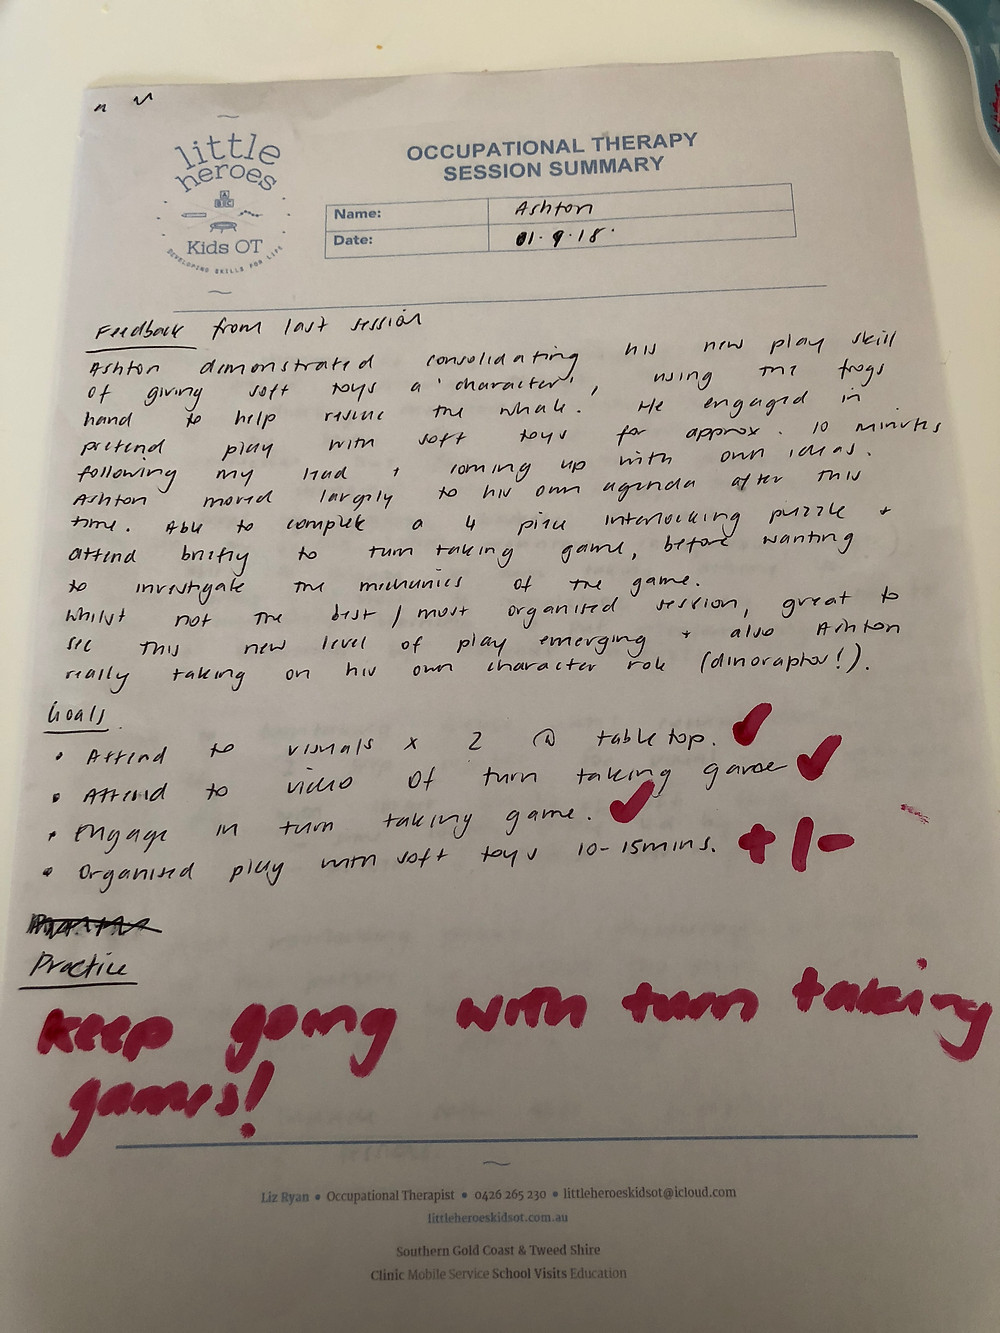 little
heroes
ABC
Kids OT
DEVELOPING SKILLS FOR LIFE
OCCUPATIONAL THERAPY
SESSION SUMMARY
Name: Ashton
Date: 01.9.18.
Feedback from last session
Ashton demonstrated consolidating his new play skill
of giving soft toys a 'character', using the frogs
hand to help rescue the whale. He engaged in
pretend play with soft toys for approx. 10 minutes
following my lead + coming up with own ideas.
Ashton moved largely to his own agenda after this
time. Able to complete a 4 piece interlocking puzzle +
attend briefly to turn taking game, before wanting
to investigate the mechanics of the game.
Whilst not the best / most organised session, great to
see this new level of play emerging + also Ashton
really taking on his own character role (dinoraptor!).
Goals
• Attend to visuals x 2 @ table top. ✓
• Attend to video of turn taking game ✓
• Engage in turn taking game. ✓
• Organised play with soft toys 10-15mins. +/-
Practice
Keep going with turn taking
games!
Liz Ryan • Occupational Therapist • 0426 265 230 • littleheroeskidsot@icloud.com
littleheroeskidsot.com.au
Southern Gold Coast & Tweed Shire
Clinic Mobile Service School Visits Education